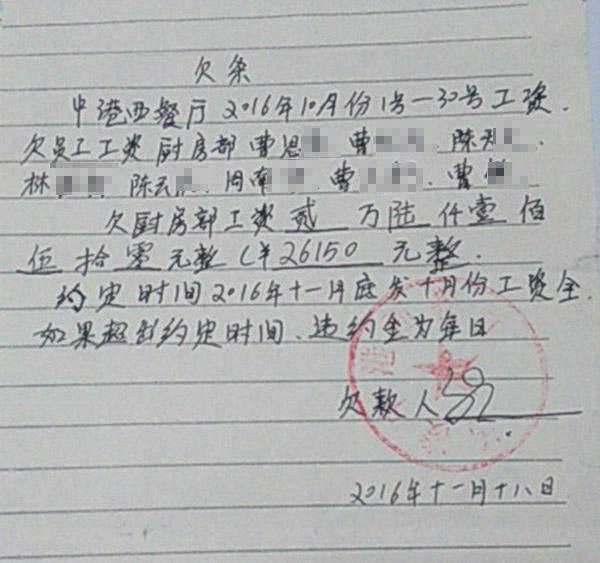 欠条
中港西餐厅 2016年10月份1号-30号工资.
欠员工工资 厨房部 曹思 曹 陈
林 陈云 周南 曹 曹
欠厨房部工资 贰 万陆 仟壹 佰
伍 拾 零 元整 (¥26150 元整.
约定时间2016年十一月底发十月份工资全.
如果超出约定时间、违约金为每日
欠款人
2016年十一月十八日